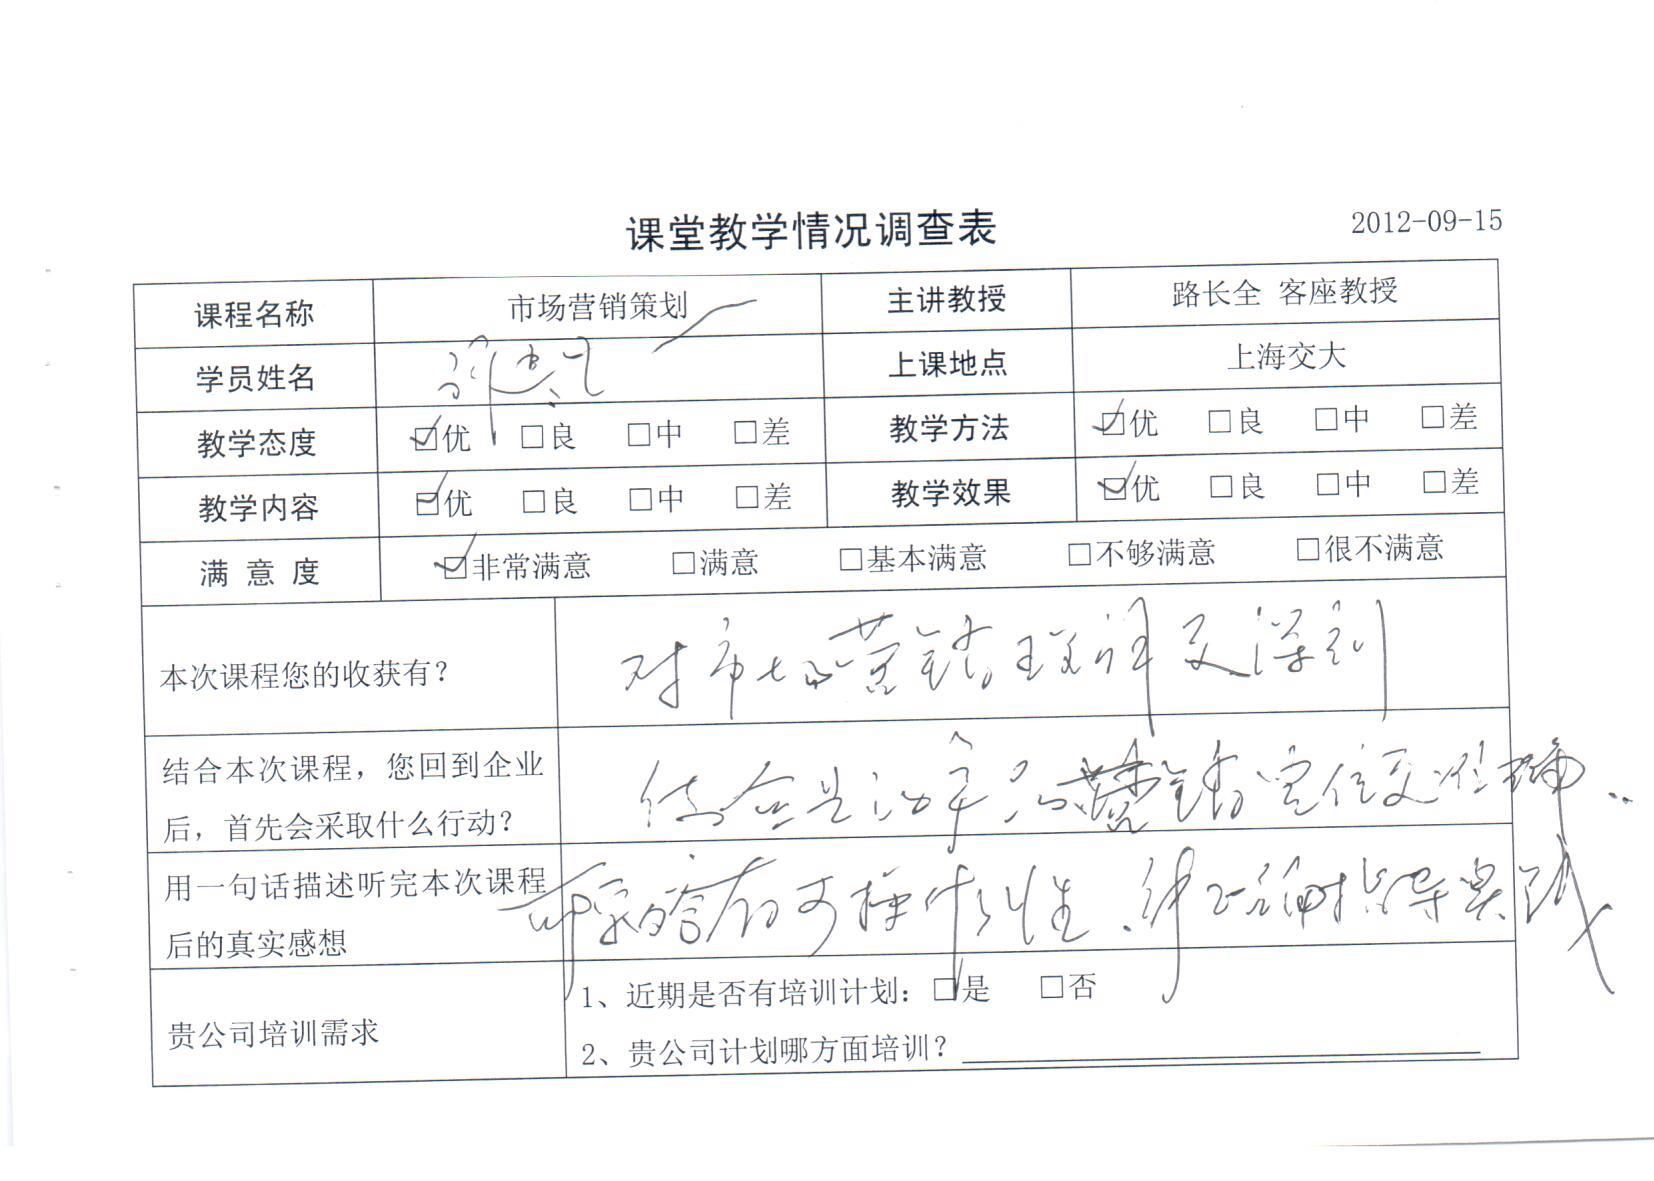 课堂教学情况调查表
2012-09-15
课程名称 市场营销策划 主讲教授 路长全 客座教授
学员姓名 上课地点 上海交大
教学态度 ☑优 □良 □中 □差 教学方法 ☑优 □良 □中 □差
教学内容 ☑优 □良 □中 □差 教学效果 ☑优 □良 □中 □差
满 意 度 ☑非常满意 □满意 □基本满意 □不够满意 □很不满意
本次课程您的收获有？
对市场营销理解更深刻
结合本次课程，您回到企业
后，首先会采取什么行动？
结合 产品 营销定位更准确
用一句话描述听完本次课程
后的真实感想
可操作性 理论指导实践
贵公司培训需求
1、近期是否有培训计划：□是 □否
2、贵公司计划哪方面培训？